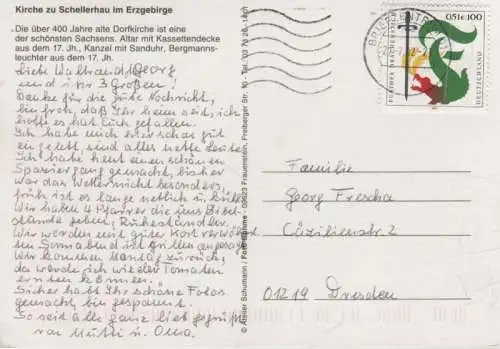 Kirche zu Schellerhau im Erzgebirge
Die über 400 Jahre alte Dorfkirche ist eine
der schönsten Sachsens. Altar mit Kassettendecke
aus dem 17. Jh., Kanzel mit Sanduhr, Bergmanns-
leuchter aus dem 17. Jh.
Liebe Waltraud, Georg
und ihr 3 Großen!
Danke für die gute Nachricht,
bin froh, daß Ihr heim seid, ich
hoffe es hat Euch gefallen.
Ich habe mich hier schon gut
eingelebt sind alles nette Leute.
Ich habe heut einen schönen
Spaziergang gemacht, bisher
war das Wetter nicht besonders,
früh ist es lange neblich u. kühl.
Wir haben 4 Pfarrer die uns Bibel-
stunde geben, Ruheständler.
Wir werden mit guter Kost verwöhnt
Sonnabend ist Grillen angesagt
Wir kommen Montag zurück,
da werde ich wieder Tomaten
ernten können.
Sicher habt Ihr schöne Fotos
gemacht, bin gespannt.
So seid alle ganz lieb gegrüßt
von Mutti u. Oma.
© Atelier Schumann / Foto 02623 Frauenstein, Freiberger Str. 10
0,51€ 100
DEUTSCHLAND
BRIEFZENTRUM
Familie
Georg Frescha
Cäzilienstr. 2
01219 Dresden